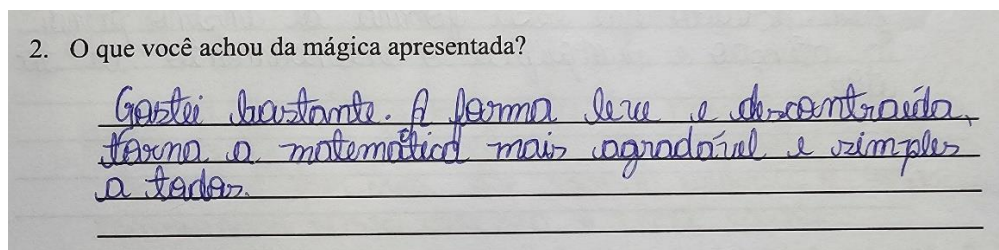 2. O que você achou da mágica apresentada?
Gostei bastante. A forma leve e descontraída,
torna a matemática mais agradável e simples
a todos.